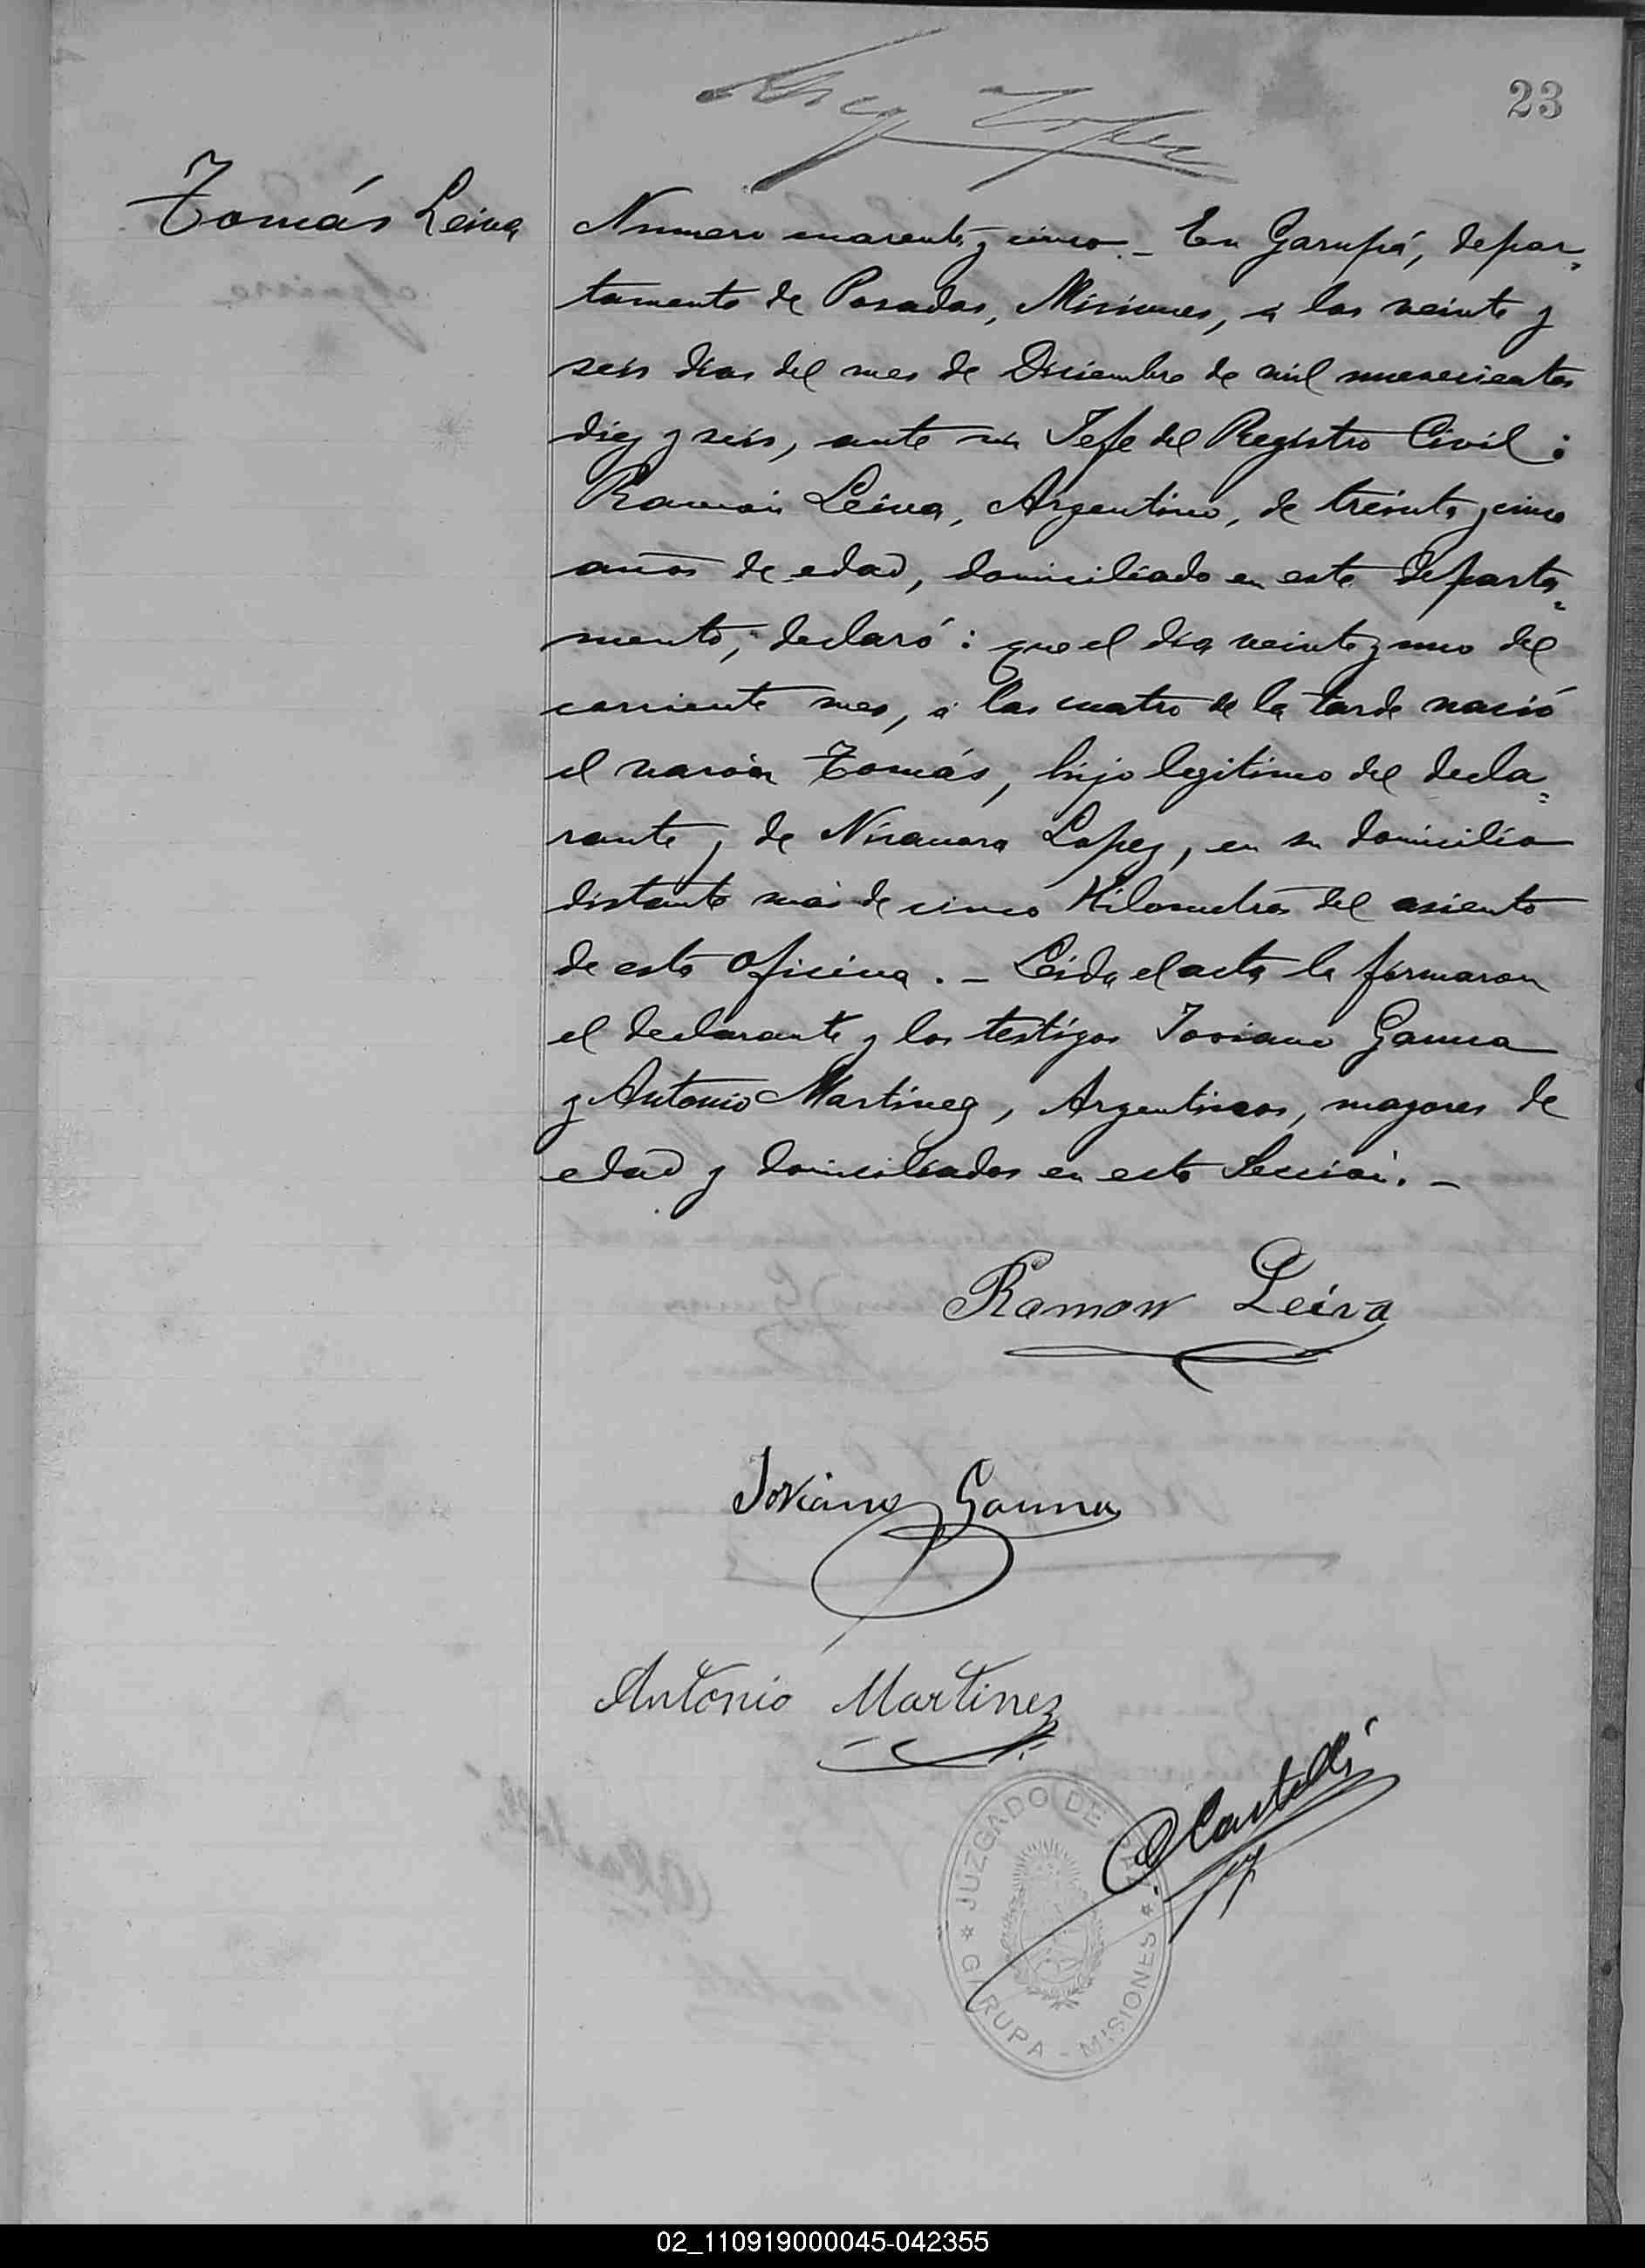 23
Tomás Leiva
Numero cuarenta y cinco. – En Garupá, depar=
tamento de Posadas, Misiones, á los veinte y
seis dias del mes de Diciembre de mil novecientos
diez y seis, ante mi Jefe del Registro Civil:
Ramón Leiva, Argentino, de treinta y cinco
años de edad, domiciliado en este departa=
mento, declaró: que el dia veinte y uno del
corriente mes, á las cuatro de la tarde nació
el varón Tomás, hijo legitimo del decla=
rante y de Lopez, en su domicilio
distante más de cinco Kilometros del asiento
de esta Oficina. – Leida el acta la firmaron
el declarante y los testigos Joviano Gauna
y Antonio Martinez, Argentinos, mayores de
edad y domiciliados en esta Sección. –
Ramon Leiva
Joviano Gauna
Antonio Martinez
Castelli
JUZGADO DE PAZ
GARUPA - MISIONES
02_110919000045-042355